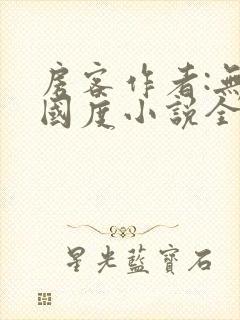 房客作者:無
國度小說全
星光藍寶石